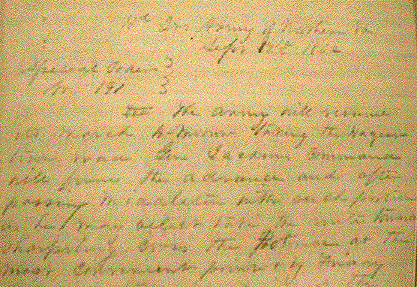 Hd Qrs Army of Northern Va
Sept 9th 1862
Special Orders
No 191
III The army will resume
its march tomorrow taking the Hagers
town road Gen Jacksons command
will form the advance and after
passing Middletown with such portion
as he may select take the route towards
Sharpsburg cross the Potomac at the
most convenient point by Friday